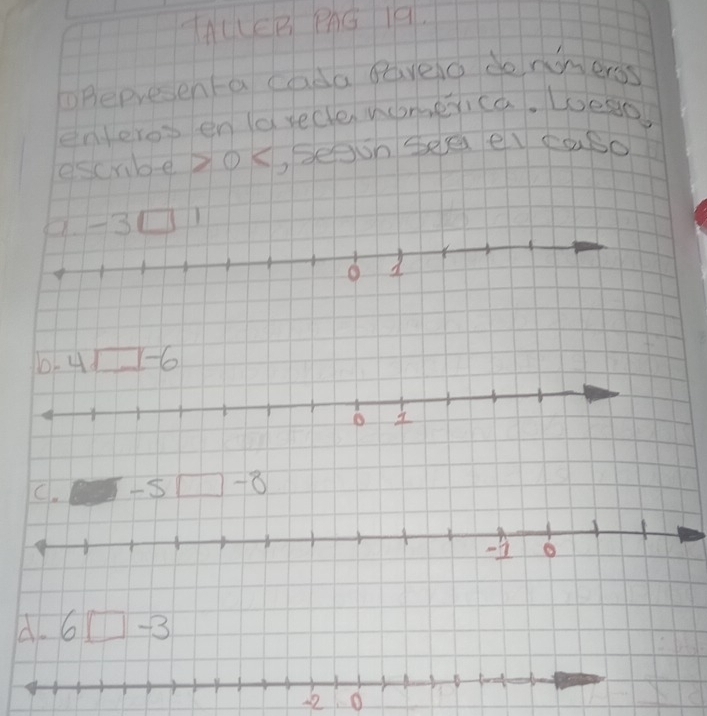 TALLER PAG 19.
1) Representa cada pareja de números
enteros en la recta numérica. Luego,
escribe > o <, según sea el caso
a. -3 □ 1
0 1
b. 4 □ -6
0 1
c. -5 □ -8
-1 0
d. 6 □ -3
-2 0